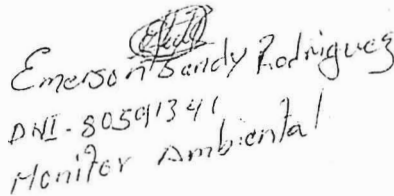 Emerson Sandy Rodriguez
DNI - 80591341
Monitor Ambiental